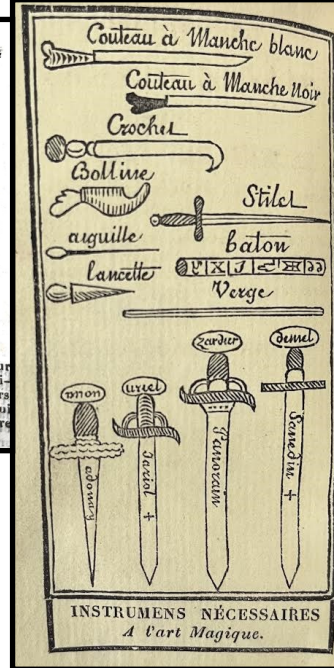 Couteau à Manche blanc
Couteau à Manche Noir
Crochet
Bolline
Stilet
aiguille
baton
lancette
Verge
zardier
demel
uriel
adonay
Jariol +
Panorain
Samedin +
INSTRUMENS NÉCESSAIRES
A l'art Magique.